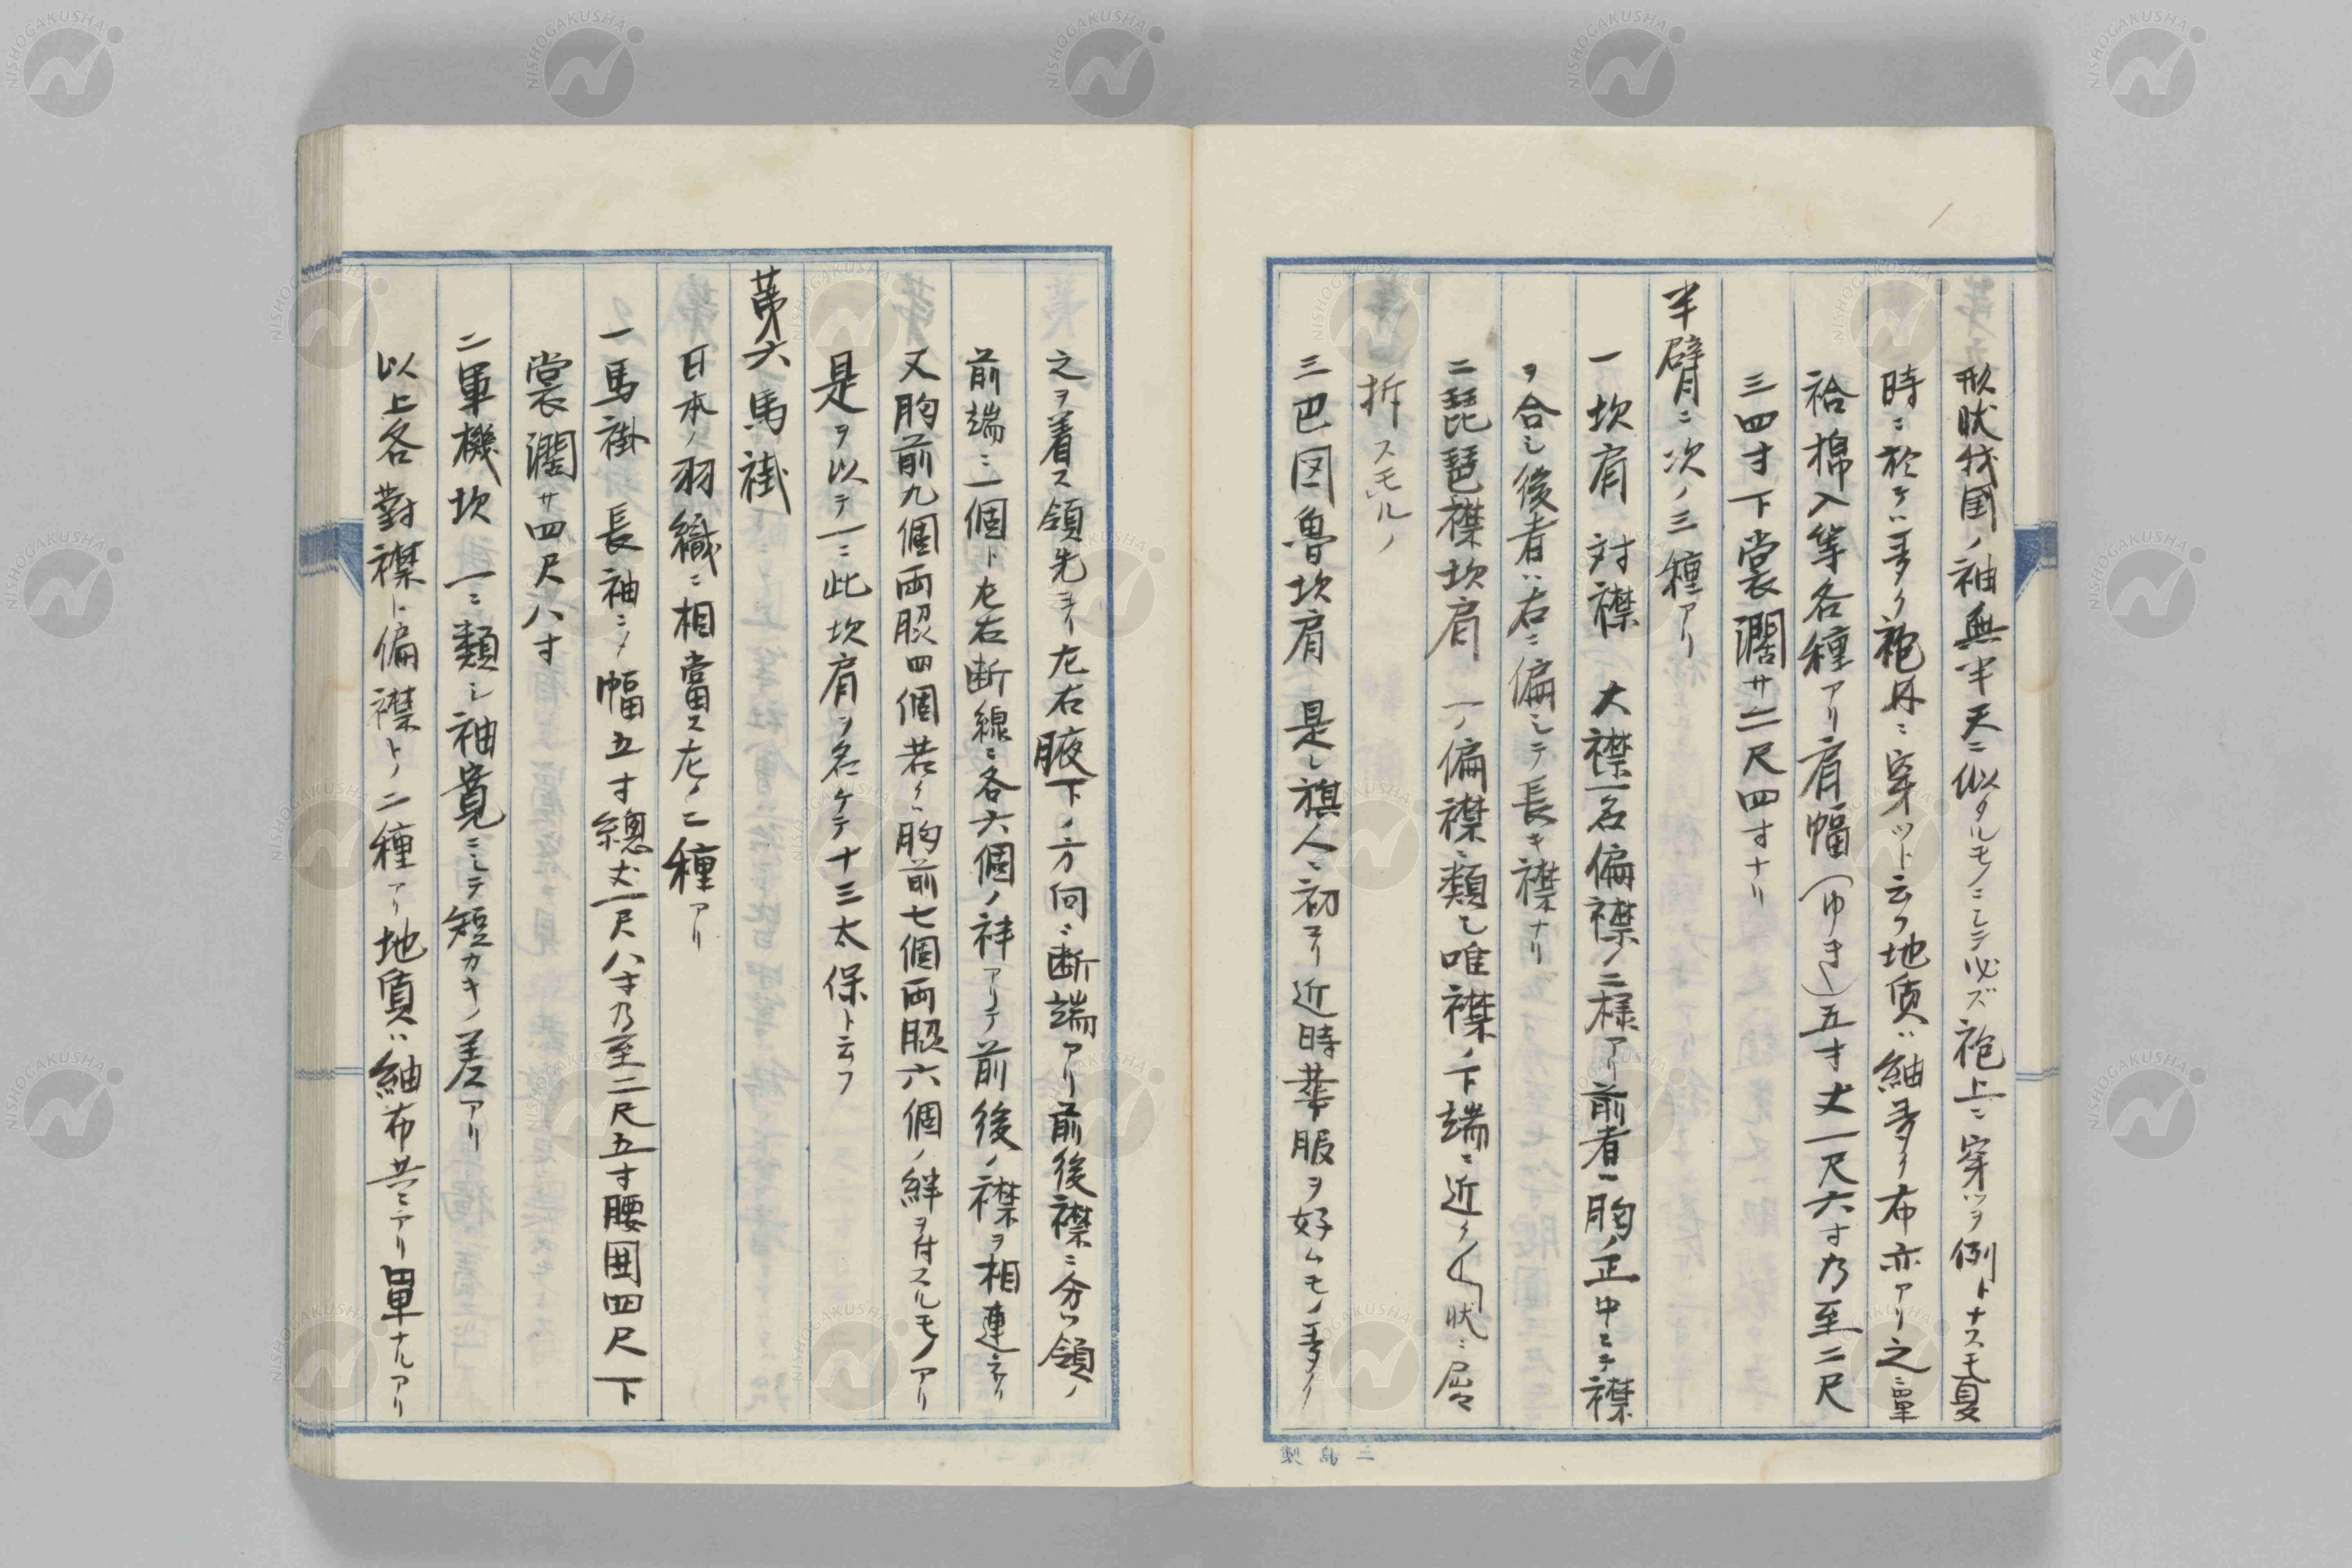 形状我国ノ袖無半天ニ似タルモノニシテ必ズ袍上ニ穿ツヲ例トナスモ夏
時ニ於テハ多ク袍外ニ穿ツト云フ地質ハ紬多ク布亦アリ之ニ單
袷棉入等各種アリ肩幅(ゆき)五寸丈一尺六寸乃至二尺
三四寸下裳濶サ二尺四寸ナリ
半臂ニ次ノ三種アリ
一坎肩 対襟 大襟一名偏襟ノ二様アリ前者ハ胸ノ正中ニテ襟
ヲ合シ後者ハ右ニ偏シテ長キ襟ナリ
二琵琶襟坎肩 一ノ偏襟ニ類シ唯襟ノ下端ニ近ク 状ニ屈
折スモルノ
三巴図魯坎肩 是レ旗人ニ初マリ近時華服ヲ好ムモノ多ク
之ヲ着ス領先ヨリ左右腋下ノ方向ニ断端アリ前後襟ニ分ツ領ノ
前端ニ一個ト左右断線ニ各六個ノ袢アリテ前後ノ襟ヲ相連ネリ
又胸前九個両腿四個若クハ胸前七個両腿六個ノ絆ヲ付スルモノアリ
是ヲ以テ一ニ此坎肩ヲ名ケテ十三太保ト云フ
第六馬褂
日本ノ羽織ニ相當ス左ノ二種アリ
一馬褂 長袖ニメ幅五寸總丈一尺八寸乃至二尺五寸腰囲四尺下
裳濶サ四尺八寸
二軍機坎 一ニ類シ袖寛ニシテ短カキノ差アリ
以上各對襟ト偏襟トノ二種アリ地質ハ紬布共ニアリ單ナルアリ
三島製
NISHOGAKUSHA